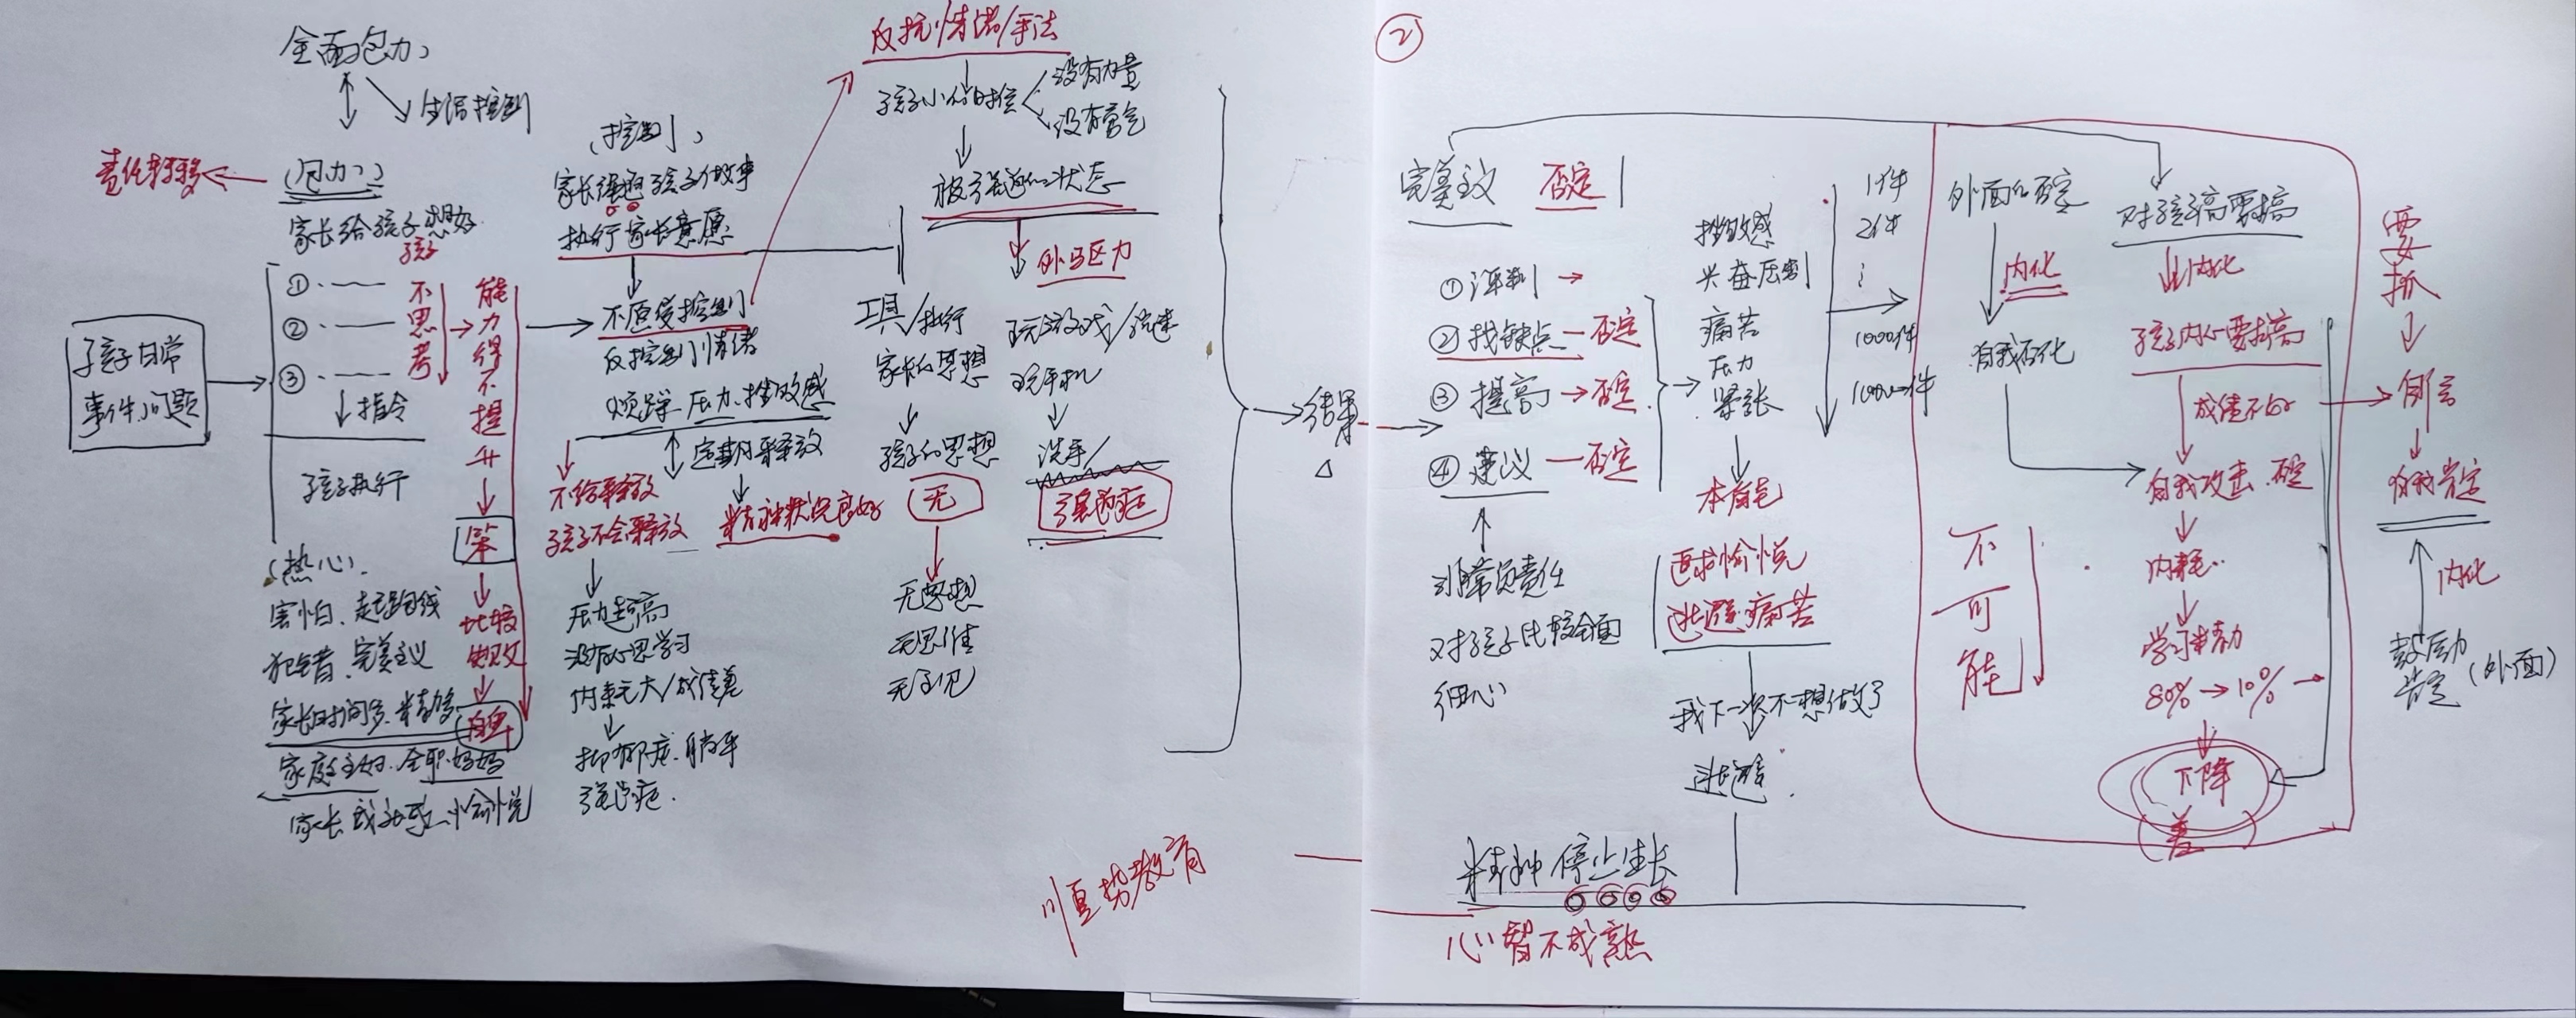 全面包办
生活控制
责任转移
(包办)
家长给孩子想好
孩子
①·——
②·——
③·——
不思考
能力得不提升
指令
孩子日常
事件、问题
孩子执行
笨
比较
失败
自卑
(热心)
害怕、起跑线
犯错、完美主义
家长时间多、精力够
家庭主妇、全职妈妈
家长成就感、愉悦
(控制)
家长强迫孩子做事
执行家长意愿
不愿受控制
反控制情绪
烦躁、压力、挫败感
不给释放
孩子不会释放
定期释放
精神状况良好
压力超高
没有心思学习
内耗大/成绩差
抑郁症、躺平
强迫症.
反抗情绪/手法
孩子小的时候
没有力量
没有勇气
被强迫的状态
外驱力
工具/执行
家长的思想
孩子的思想
无
无梦想
无思维
无主见
玩游戏/
玩手机
洗手/
强迫症
顺势教育
结果
②
完美主义 否定
①评判→
②找缺点—否定
③提高→否定
④建议—否定
非常负责任
对孩子比较全面
细心
挫败感
兴奋压制
痛苦
压力
紧张
本能
追求愉悦
逃避痛苦
我下一次不想做了
逃避
精神停止生长
心智不成熟
1件
2件
1000件
10000件
外面的否定
内化
自我否化
对孩子高要搞
内化
孩子内心要搞高
成绩不好
自我攻击、否定
内耗..
学习精力
80%→10%→
下降
(差)
不可能
要抓
自我肯定
内化
鼓励
肯定
(外面)